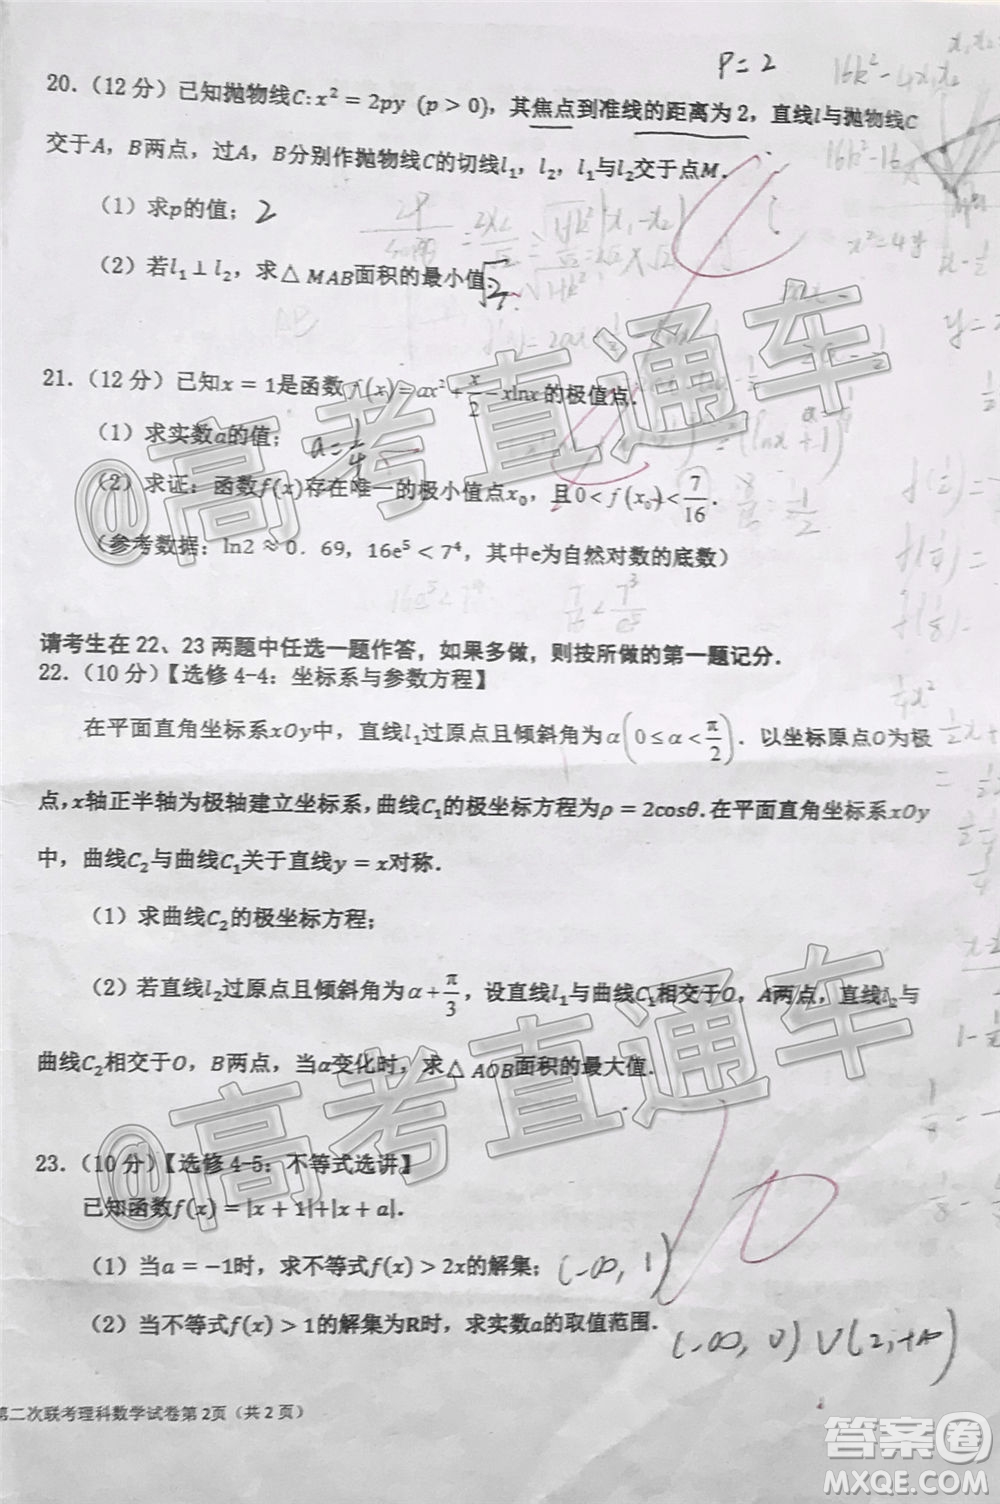 P=2
20.（12分）已知抛物线C:x²=2py (p>0)，其焦点到准线的距离为2，直线l与抛物线C
交于A，B两点，过A，B分别作抛物线C的切线l₁，l₂，l₁与l₂交于点M．
（1）求p的值；2
（2）若l₁⊥l₂，求△MAB面积的最小值．
21.（12分）已知x＝1是函数f(x)＝ax²+x/2−xlnx的极值点．
（1）求实数a的值；a=1/4
（2）求证：函数f(x)存在唯一的极小值点x₀，且0<f(x₀)<7/16．
（参考数据：ln2≈0．69，16e⁵<7⁴，其中e为自然对数的底数）
请考生在22、23两题中任选一题作答，如果多做，则按所做的第一题记分．
22.（10分）【选修4-4：坐标系与参数方程】
在平面直角坐标系xOy中，直线l₁过原点且倾斜角为α(0≤α<π/2)．以坐标原点O为极
点，x轴正半轴为极轴建立坐标系，曲线C₁的极坐标方程为ρ＝2cosθ.在平面直角坐标系xOy
中，曲线C₂与曲线C₁关于直线y＝x对称．
（1）求曲线C₂的极坐标方程；
（2）若直线l₂过原点且倾斜角为α+π/3，设直线l₁与曲线C₁相交于O，A两点，直线l₂与
曲线C₂相交于O，B两点，当α变化时，求△AOB面积的最大值．
23.（10分）【选修4-5：不等式选讲】
已知函数f(x)＝|x＋1|＋|x＋a|．
（1）当a＝−1时，求不等式f(x)＞2x的解集；(-∞, 1)
（2）当不等式f(x)＞1的解集为R时，求实数a的取值范围．(-∞, 0)∪(2,+∞)
第二次联考理科数学试卷第2页（共2页）
@高考直通车
@高考直通车
答案圈
MXQE.COM